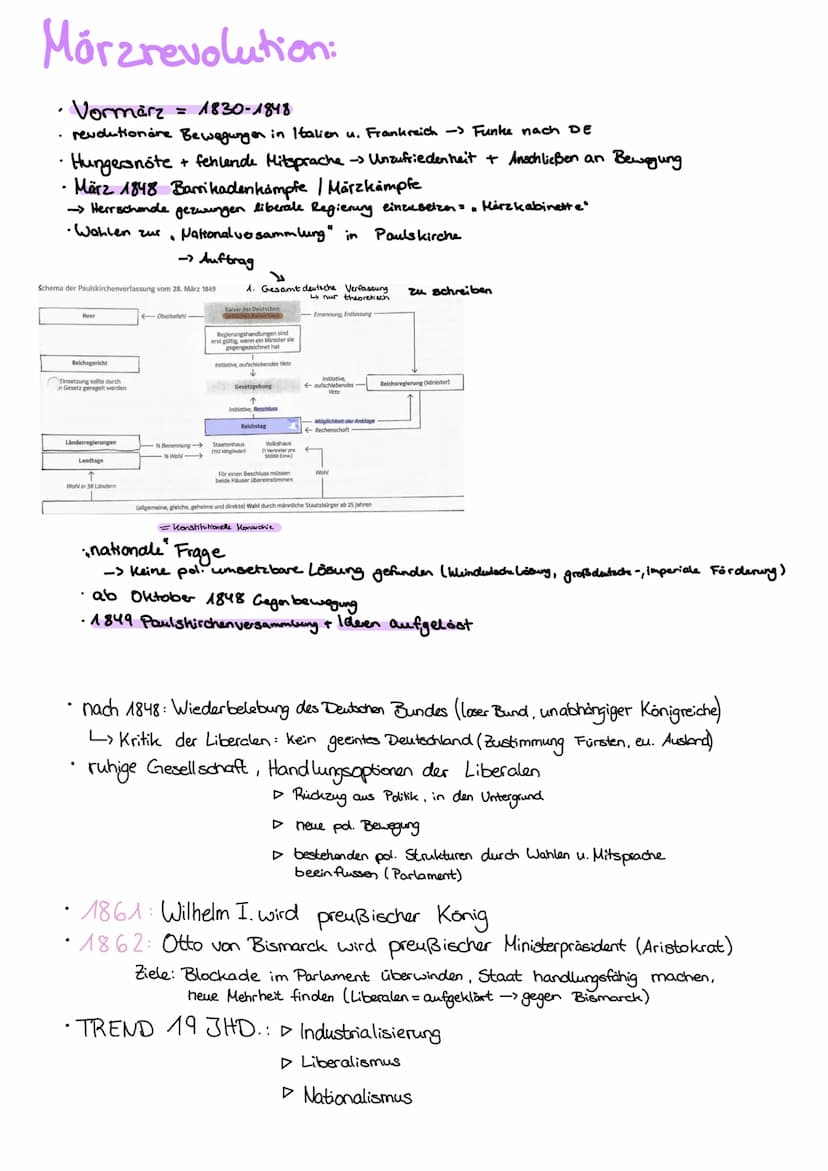 Märzrevolution:
· Vormärz = 1830-1848
· revolutionäre Bewegungen in Italien u. Frankreich -> Funke nach DE
· Hungersnöte + fehlende Mitsprache -> Unzufriedenheit + Anschließen an Bewegung
· März 1848 Barrikadenkämpfe / Märzkämpfe
-> Herrschende gezwungen liberale Regierung einzusetzen = „Märzkabinette"
· Wahlen zur „Nationalversammlung" in Paulskirche
-> Auftrag
1. Gesamtdeutsche Verfassung zu schreiben
↳ nur theoretisch
Schema der Paulskirchenverfassung vom 28. März 1849
Heer
Oberbefehl
Kaiser der Deutschen
Ernennung, Entlassung
Regierungshandlungen sind
erst gültig, wenn ein Minister sie
gegengezeichnet hat
Reichsgericht
Initiative, aufschiebendes Veto
Einsetzung sollte durch
Gesetz geregelt werden
Gesetzgebung
Initiative,
aufschiebendes
Veto
Reichsregierung (Minister)
Initiative, Beschluss
Reichstag
Möglichkeit der Anklage
Rechenschaft
Länderregierungen
Landtage
½ Benennung
½ Wahl
Staatenhaus
(192 Mitglieder)
Volkshaus
(1 Vertreter pro
50000 Einw.)
Für einen Beschluss müssen
beide Häuser übereinstimmen
Wahl
Wahl in 38 Ländern
(allgemeine, gleiche, geheime und direkte) Wahl durch männliche Staatsbürger ab 25 Jahren
= Konstitutionelle Monarchie
· „nationale" Frage
-> Keine pol. umsetzbare Lösung gefunden (kleindeutsche Lösung, großdeutsche -, imperiale Förderung)
· ab Oktober 1848 Gegenbewegung
· 1849 Paulskirchenversammlung + Ideen aufgelöst
· nach 1848: Wiederbelebung des Deutschen Bundes (loser Bund, unabhängiger Königreiche)
↳ Kritik der Liberalen: Kein geeintes Deutschland (Zustimmung Fürsten, eu. Ausland)
· ruhige Gesellschaft, Handlungsoptionen der Liberalen
▷ Rückzug aus Politik, in den Untergrund
▷ neue pol. Bewegung
▷ bestehenden pol. Strukturen durch Wahlen u. Mitsprache
beeinflussen (Parlament)
· 1861: Wilhelm I. wird preußischer König
· 1862: Otto von Bismarck wird preußischer Ministerpräsident (Aristokrat)
Ziele: Blockade im Parlament überwinden, Staat handlungsfähig machen,
neue Mehrheit finden (Liberalen = aufgeklärt -> gegen Bismarck)
· TREND 19 JHD.: ▷ Industrialisierung
▷ Liberalismus
▷ Nationalismus